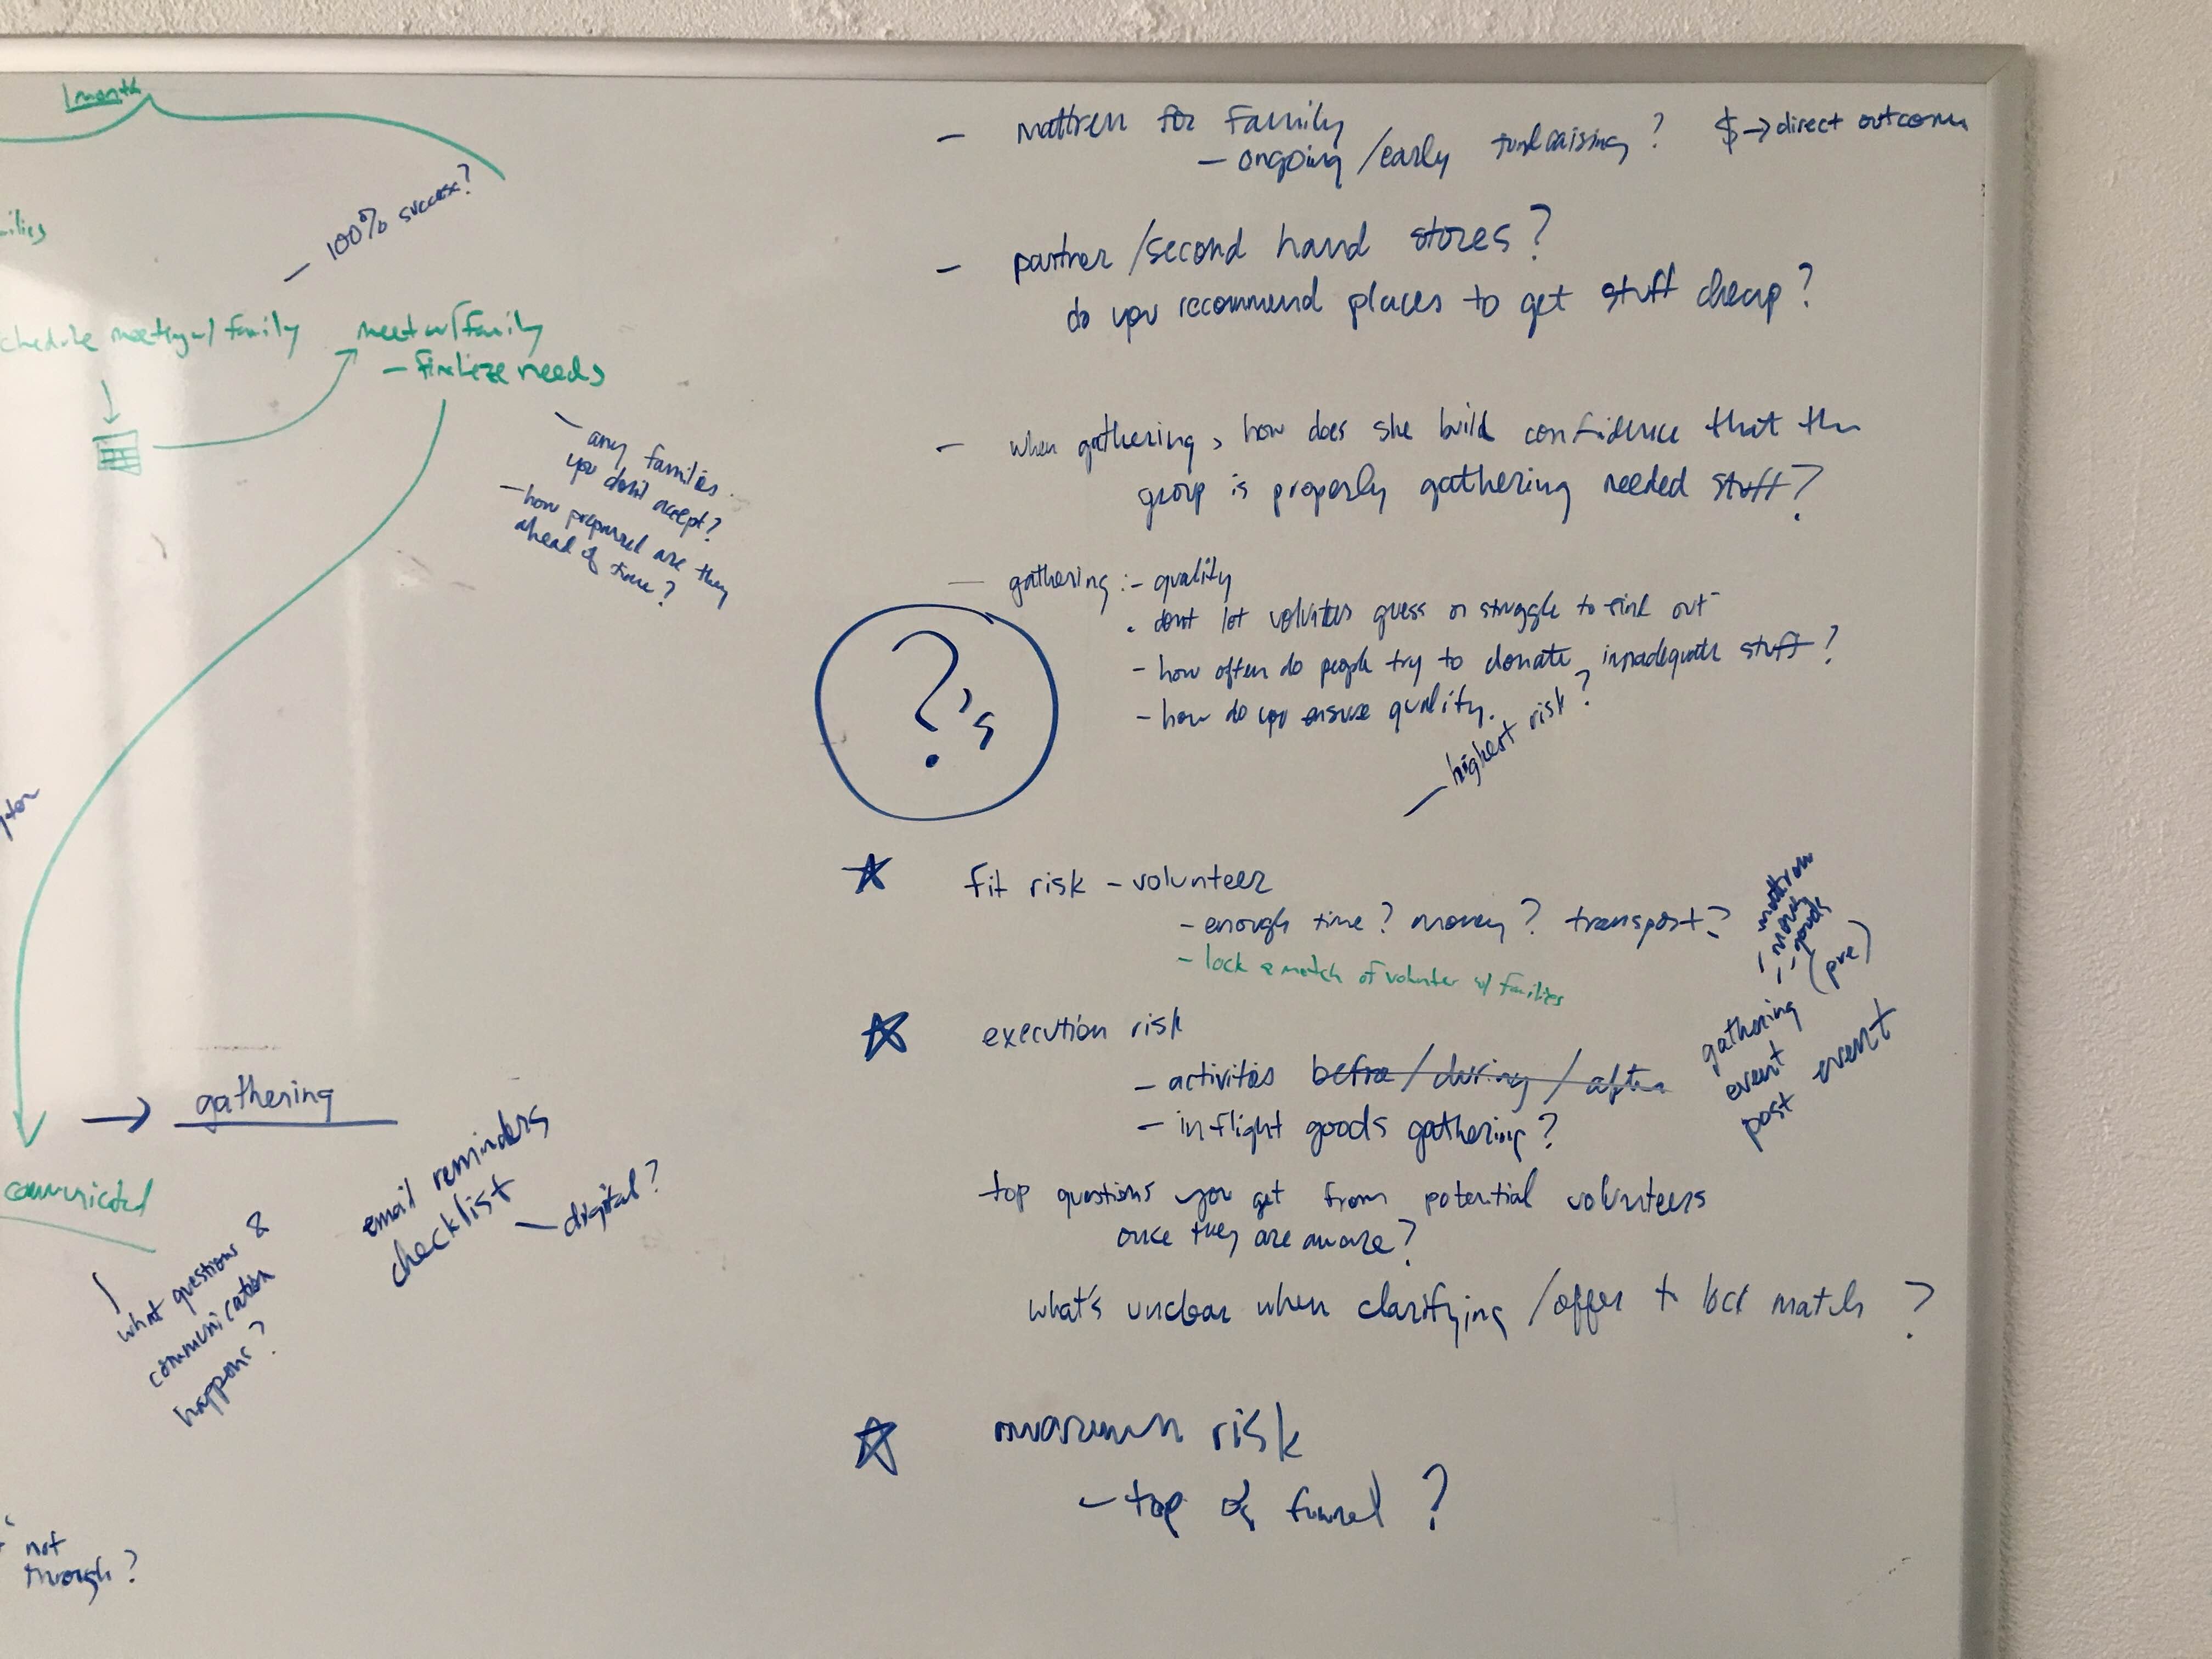 1 month
ilies
- 100% success?
chedule meeting w/ family
meet w/ family
- finalize needs
- any families
you don't accept?
- how prepared are they
ahead of time?
→ gathering
communicated
what questions &
communication
happens?
email reminders
checklist
- digital?
not
through?
- mattress for family
- ongoing/early fundraising? $→direct outcome
- partner/second hand stores?
do you recommend places to get stuff cheap?
- when gathering, how does she build confidence that the
group is properly gathering needed stuff?
- gathering: - quality
- don't let volunteers guess or struggle to find out
- how often do people try to donate inadequate stuff?
- how do you ensure quality.
- highest risk?
?'s
☆ fit risk - volunteer
- enough time? money? transport?
- lock a match of volunteer w/ families
☆ execution risk
- activities before/during/after
- in flight goods gathering?
- mattress
- money
- goods
gathering (pre)
event
post event
top questions you get from potential volunteers
once they are aware?
what's unclear when clarifying/offer to lock match?
☆ risk
- top of funnel?